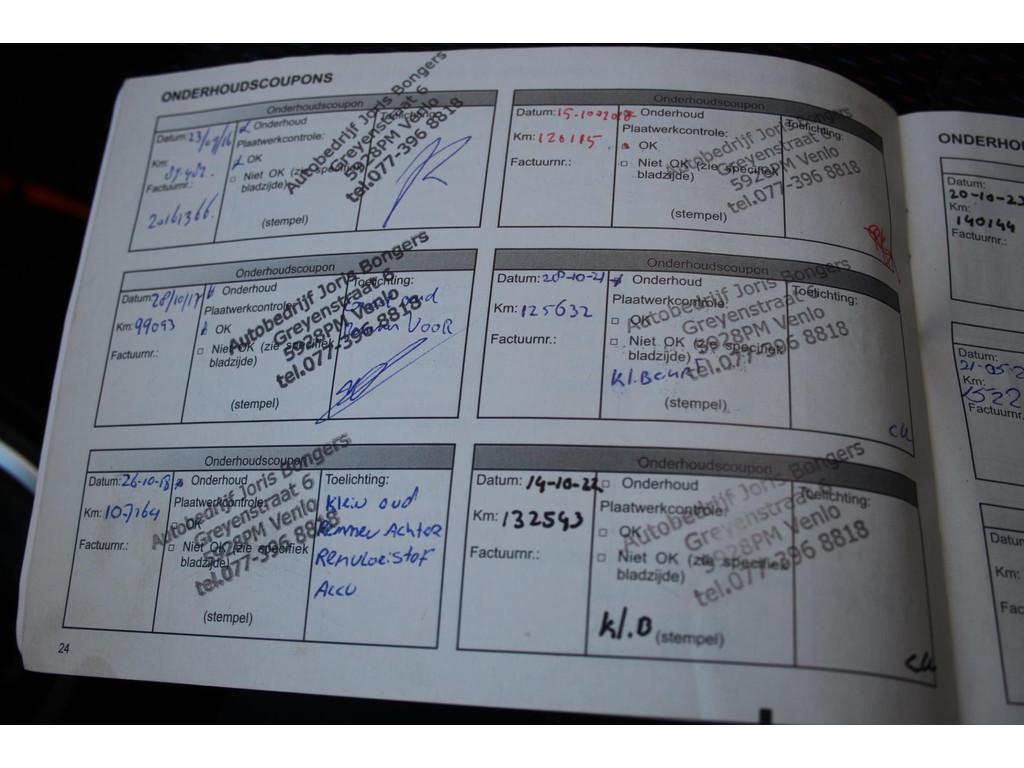 ONDERHOUDSCOUPONS
Onderhoudscoupon
Datum: 23/09/16
Onderhoud
Toelichting:
Plaatwerkcontrole:
Km: 87.482.
OK
Niet OK (zie specifiek
bladzijde)
Factuurnr.:
20161366.
(stempel)
Autobedrijf Joris Bongers
Greyenstraat 6
5928PM Venlo
tel.077-396 8818
Onderhoudscoupon
Datum: 28/10/17
Onderhoud
Toelichting:
Plaatwerkcontrole:
Km: 99093
OK
VOOR
Niet OK (zie specifiek
bladzijde)
Factuurnr.:
(stempel)
Autobedrijf Joris Bongers
Greyenstraat 6
5928PM Venlo
tel.077-396 8818
Onderhoudscoupon
Datum: 26-10-18
Onderhoud
Toelichting:
Plaatwerkcontrole:
Klein oud
Km: 107164
OK
Remmen Achter
Factuurnr.:
Niet OK (zie specifiek
bladzijde)
Remvloeistof
Accu
(stempel)
Autobedrijf Joris Bongers
Greyenstraat 6
5928PM Venlo
tel.077-396 8818
24
Onderhoudscoupon
Datum:
Onderhoud
Toelichting:
Plaatwerkcontrole:
Km: 120115.
OK
Niet OK (zie specifiek
bladzijde)
Factuurnr.:
(stempel)
Autobedrijf Joris Bongers
Greyenstraat 6
5928PM Venlo
tel.077-396 8818
Onderhoudscoupon
Datum: 28-10-21
Onderhoud
Toelichting:
Plaatwerkcontrole:
Km: 125632
OK
Factuurnr.:
Niet OK (zie specifiek
bladzijde)
Kl.Beurt
(stempel)
Autobedrijf Joris Bongers
Greyenstraat 6
5928PM Venlo
tel.077-396 8818
Onderhoudscoupon
Datum: 14-10-22
Onderhoud
Toelichting:
Plaatwerkcontrole:
Km: 132543
OK
Factuurnr.:
Niet OK (zie specifiek
bladzijde)
Kl.B
(stempel)
Autobedrijf Joris Bongers
Greyenstraat 6
5928PM Venlo
tel.077-396 8818
ONDERHO
Datum:
20-10-23
Km:
140144
Factuurnr.:
Datum:
21-05-2
Km:
1522
Factuurnr
Datu
Km:
Fac